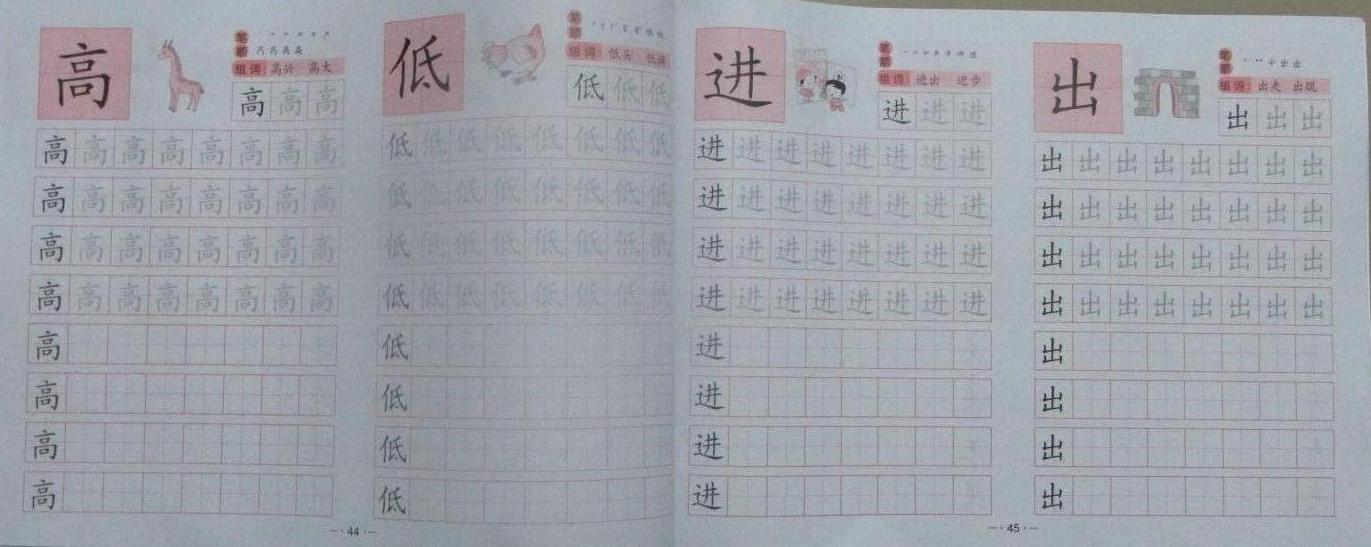 高
笔顺
组词 高兴 高大
高高高
高高高高高高高高
高高高高高高高高
高高高高高高高高
高高高高高高高高
高
高
高
高
低
笔顺
组词 低头
低低低
低低低低低低低低
低低低低低低低低
低低低低低低低低
低低低低低低低低
低
低
低
低
44
进
笔顺
组词 进出 进步
进进进
进进进进进进进进
进进进进进进进进
进进进进进进进进
进进进进进进进进
进
进
进
进
出
笔顺
组词 出走 出现
出出出
出出出出出出出出
出出出出出出出出
出出出出出出出出
出出出出出出出出
出
出
出
出
45